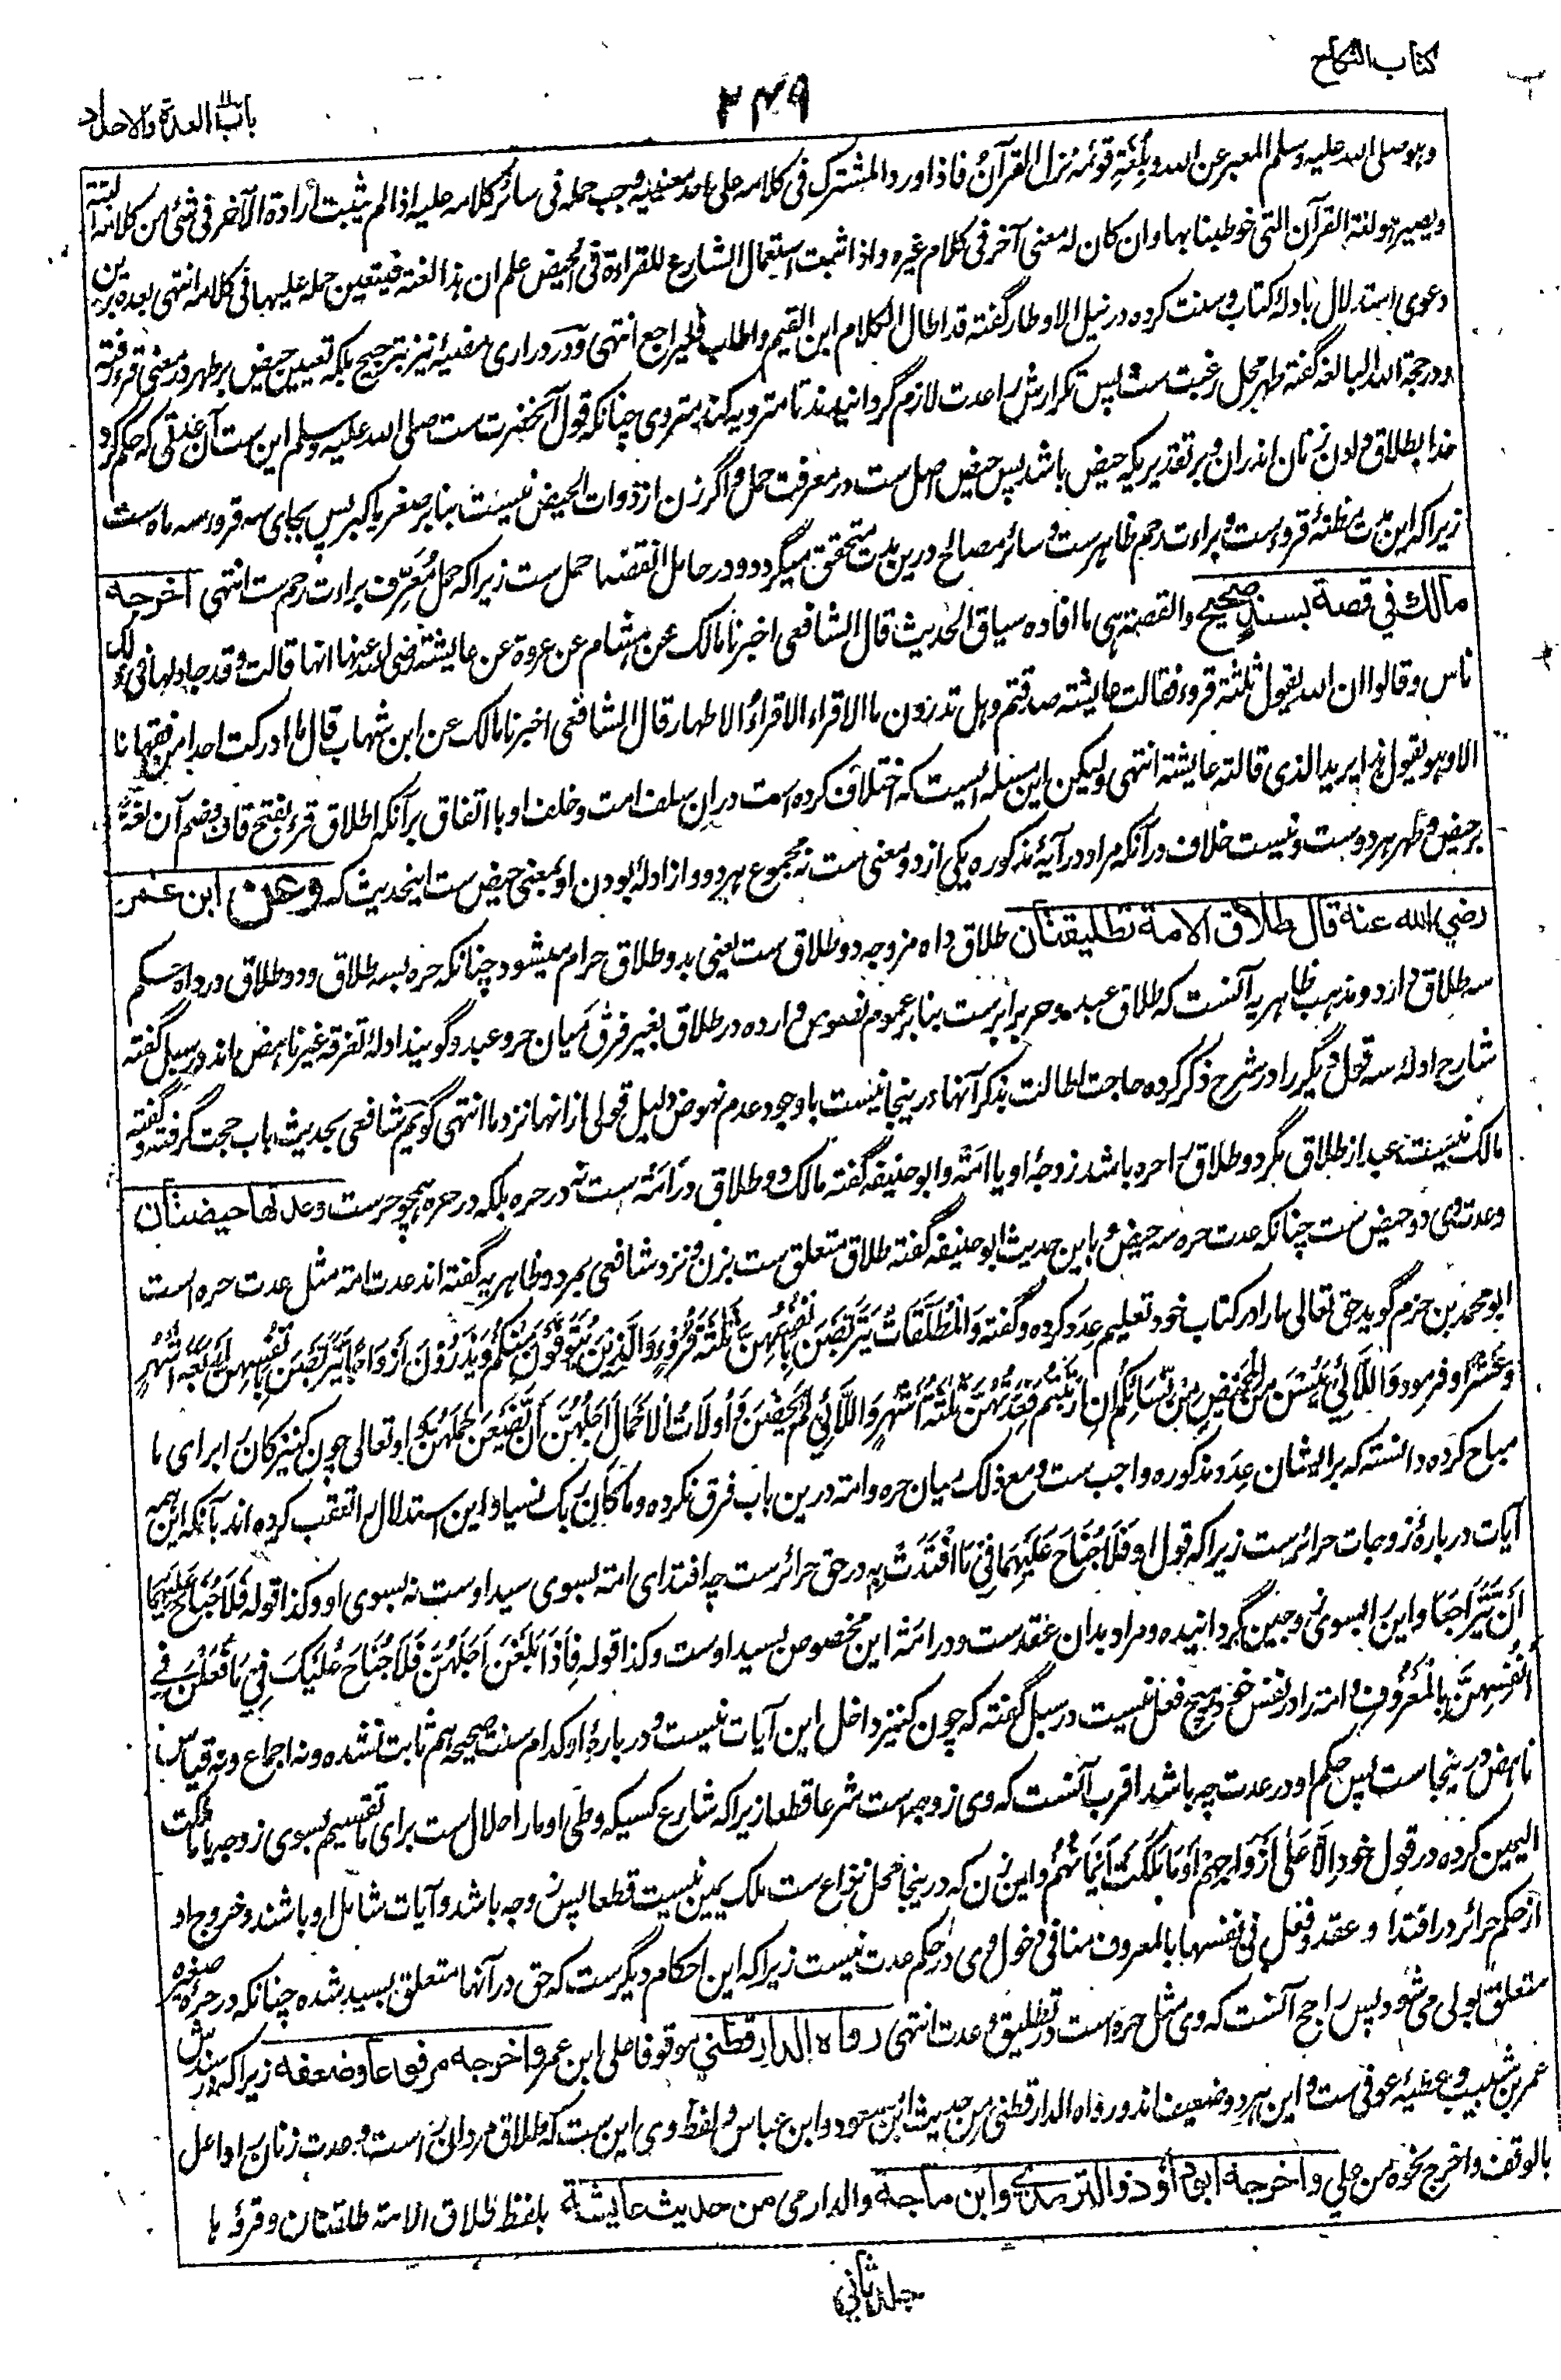 کتاب النکاح
۲۴۹
باب العدة والاحداد
وہو صلی اللہ علیہ وسلم المعبر عن اللہ وبلغة قومہ نزل القرآن فاذا ورد المشترک فی کلامہ علی احد معنییہ وجب حملہ فی سائر کلامہ علیہ اذا لم یثبت ارادة الآخر فی شئ من کلامہ البتة
ویصیر ہو لغة القرآن التی خوطبنا بہا وان کان لہ معنی آخر فی کلام غیرہ واذا ثبت استعمال الشارع للقراءة فی الحیض علم ان ہذا لغتہ فیتعین حملہ علیہا فی کلامہ انتہی بعدہ برین
دعوی استدلال بادلۂ کتاب وسنت کردہ در نیل الاوطار گفتہ قد اطال الکلام ابن القیم واطاب فلیراجع انتہی ودر دراری مضیئہ نیز بترجیح بلکہ تعیین حیض بر طہر در معنی قرء رفتہ
ودر حجة اللہ البالغہ گفتہ طہر محل رغبت ست پس تکرارش را عدت لازم گردانیدند تا متروی کند متروی چنانکہ قول آنحضرت ست صلی اللہ علیہ وسلم این ست آن عدتی کہ حکم کرد
خدا بطلاق دادن زنان اندران وبر تقدیریکہ حیض باشد پس حیض اصل ست در معرفت حمل واگر زن از ذوات الحیض نیست بنا بر صغر یا کبر پس بجای سہ قروء سہ ماہ ست
زیرا کہ این مدت مظنۂ قروء ست وبراءت رحم ظاہر ست وسائر مصالح درین مدت متحقق میگردد ودر حامل انقضا حمل ست زیرا کہ حمل معرف براءت رحم ست انتہی اخرجہ
مالک فی قصة بسند صحیح والقصة ہی ما افادہ سیاق الحدیث قال الشافعی اخبرنا مالک عن ہشام عن عروة عن عایشة رضی اللہ عنہا انہا قالت وقد جادلہا فی ذلک
ناس وقالوا ان اللہ یقول ثلثة قروء فقالت عایشة صدقتم وہل تدرون ما الاقراء الاقراء الاطہار قال الشافعی اخبرنا مالک عن ابن شہاب قال ما ادرکت احدا من فقہائنا
الا وہو یقول ہذا یرید الذی قالتہ عایشة انتہی ولیکن این مسئلہ ایست کہ اختلاف کردہ است دران سلف امت وخلف او با اتفاق بر آنکہ اطلاق قرء بفتح قاف وضم آن لغةً
بر حیض وطہر ہر دو ست ونیست خلاف در آنکہ مراد در آیۂ مذکورہ یکی از دو معنی ست نہ مجموع ہر دو واز ادلۂ بودن او بمعنی حیض ست اینحدیث کہ وعن ابن عمر
رضی اللہ عنہ قال طلاق الامة تطلیقتان طلاق داہ مزوجہ دو طلاق ست یعنی بدو طلاق حرام میشود چنانکہ حرہ بسہ طلاق ودو طلاق در داہ حکم
سہ طلاق دارد ومذہب ظاہریہ آنست کہ طلاق عبد وحر برابر ست بنا بر عموم نصوص واردہ در طلاق بغیر فرق میان حر وعبد وگویند ادلۂ تفرقہ غیر ناہض اند در سبل گفتہ
شارح ادلۂ سہ قول دیگر را در شرح ذکر کردہ حاجت اطالت بذکر آنہا درینجا نیست با وجود عدم نہوض دلیل قولی ازانہا نزد ما انتہی گویم شافعی بحدیث باب حجت گرفتہ وگفتہ
مالک نیست عبد از طلاق مگر دو طلاق را حرہ باشد زوجۂ او یا امة وابو حنیفہ گفتہ مالک دو طلاق در امة ست نہ در حرہ بلکہ در حرہ ہمچو حر ست وعدتہا حیضتان
وعدت وی دو حیض ست چنانکہ عدت حرہ سہ حیض وباین حدیث ابو حنیفہ گفتہ طلاق متعلق ست بزن ونزد شافعی بمرد وظاہریہ گفتہ اند عدت امة مثل عدت حرہ است
ابو محمد بن حزم گوید حق تعالی ما را در کتاب خود تعلیم عدد کردہ وگفتہ وَالْمُطَلَّقَاتُ يَتَرَبَّصْنَ بِأَنْفُسِهِنَّ ثَلٰثَةَ قُرُوْءٍ وَالَّذِيْنَ يُتَوَفَّوْنَ مِنْكُمْ وَيَذَرُوْنَ أَزْوَاجًا يَّتَرَبَّصْنَ بِأَنْفُسِهِنَّ أَرْبَعَةَ أَشْهُرٍ
وَعَشْرًا وفرمود وَاللَّائِیْ يَئِسْنَ مِنَ الْمَحِيْضِ مِنْ نِّسَائِكُمْ إِنِ ارْتَبْتُمْ فَعِدَّتُهُنَّ ثَلٰثَةُ أَشْهُرٍ وَاللَّائِیْ لَمْ يَحِضْنَ وَأُولَاتُ الْأَحْمَالِ أَجَلُهُنَّ أَنْ يَّضَعْنَ حَمْلَهُنَّ واو تعالی چون کنیزکان را برای ما
مباح کردہ دانستہ کہ بر ایشان عدد مذکورہ واجب ست ومع ذلک میان حرہ وامة درین باب فرق نکردہ وما کان ربک نسیا واین استدلال را تعقب کردہ اند بآنکہ این ہمہ
آیات در بارۂ زوجات حرائر ست زیرا کہ قول او فَلَا جُنَاحَ عَلَيْهِمَا فِيْمَا افْتَدَتْ بِهِ در حق حرائر ست چہ افتدای امتہ بسوی سید اوست نہ بسوی او وکذا قولہ فَلَا جُنَاحَ عَلَيْهِمَا
أَنْ يَّتَرَاجَعَا واین را بسوی زوجین گردانیدہ ومراد بدان عقد ست ودر امة این مخصوص بسید اوست وکذا قولہ فَإِذَا بَلَغْنَ أَجَلَهُنَّ فَلَا جُنَاحَ عَلَيْكُمْ فِيْمَا فَعَلْنَ فِیْ
أَنْفُسِهِنَّ بِالْمَعْرُوْفِ وامة را در نفس خود ہیچ فعل نیست در سبل گفتہ کہ چون کنیز داخل این آیات نیست ودر بارۂ او کدام سنت صحیحہ ہم ثابت نشدہ ونہ اجماع ونہ قیاس
ناہض درینجا ست پس حکم او در عدت چہ باشد اقرب آنست کہ وی زوجہ است شرعا قطعا زیرا کہ شارع کسیکہ وطی او ما را حلال ست برای ما تقسیم بسوی زوجہ یا ملکت
الیمین کردہ در قول خود إِلَّا عَلٰی أَزْوَاجِهِمْ أَوْ مَا مَلَكَتْ أَيْمَانُهُمْ واین زن کہ درینجا محل نزاع ست ملک یمین نیست قطعا پس زوجہ باشد وآیات شامل او باشند وخروج او
از حکم حرائر در افتدا وعقد وفعل فی نفسہا بالمعروف منافی دخول وی در حکم عدت نیست زیرا کہ این احکام دیگر ست کہ حق در آنہا متعلق بسید شدہ چنانکہ در حرۂ صغیرہ
متعلق بولی می شود پس راجح آنست کہ وی مثل حرہ است در تطلیق وعدت انتہی رواہ الدارقطنی موقوفا علی ابن عمر واخرجہ مرفوعا وضعفہ زیرا کہ در سندش
عمر بن شبیب وعطیۂ عوفی ست واین ہر دو ضعیف اند ورواہ الدارقطنی من حدیث ابن مسعود وابن عباس ولفظ وی این ست کہ طلاق مردان را ست وعدت زنان را واعل
بالوقف واخرج نحوہ من علی واخرجہ ابو داؤد والترمذی وابن ماجة والدارمی من حدیث عایشة بلفظ طلاق الامة طلقتان وقرؤہا
جلد ثانی